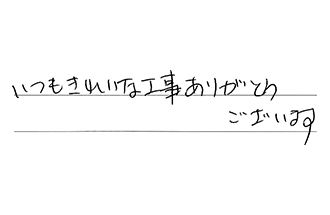 いつもきれいな工事ありがとう
ございます